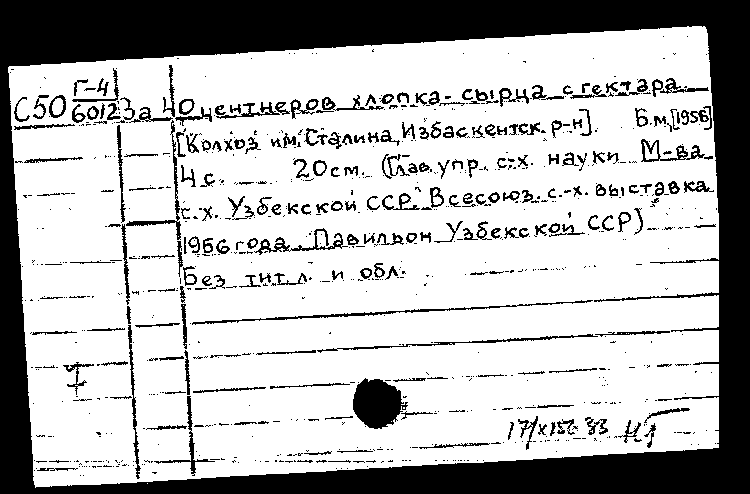 Г-4
С50 60123 за 40 центнеров хлопка-сырца с гектара.
[Колхоз им. Сталина, Избаскентск. р-н]. Б.м., [1956]
4 с. 20 см. (Глав. упр. с-х. науки М-ва
с.х. Узбекской ССР. Всесоюз. с.-х. выставка
1956 года. Павильон Узбекской ССР)
Без тит. л. и обл.
7